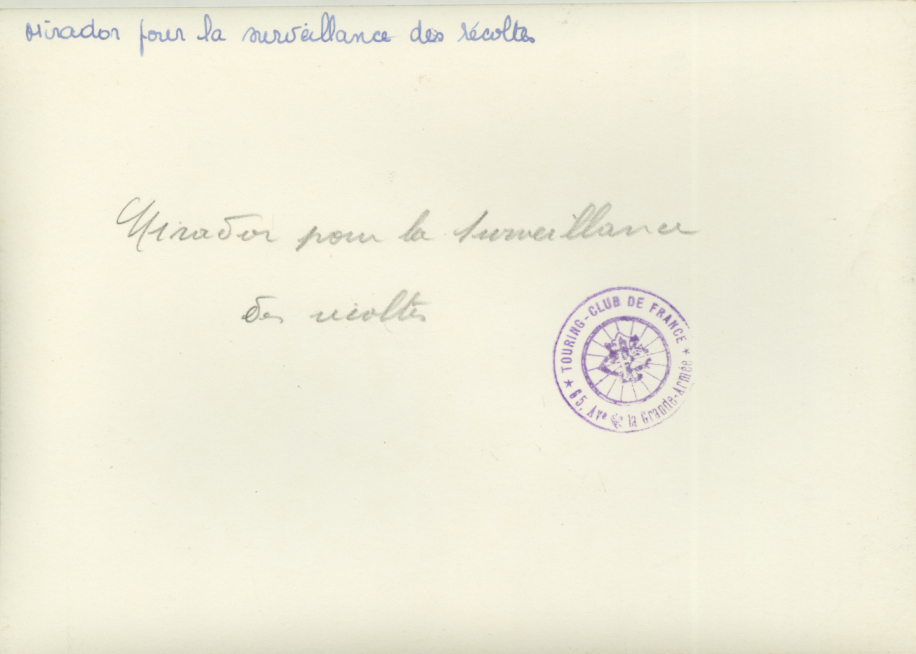 Mirador pour la surveillance des récoltes
Mirador pour la surveillance
des récoltes
★ TOURING-CLUB DE FRANCE ★
65, Ave de la Grande-Armée